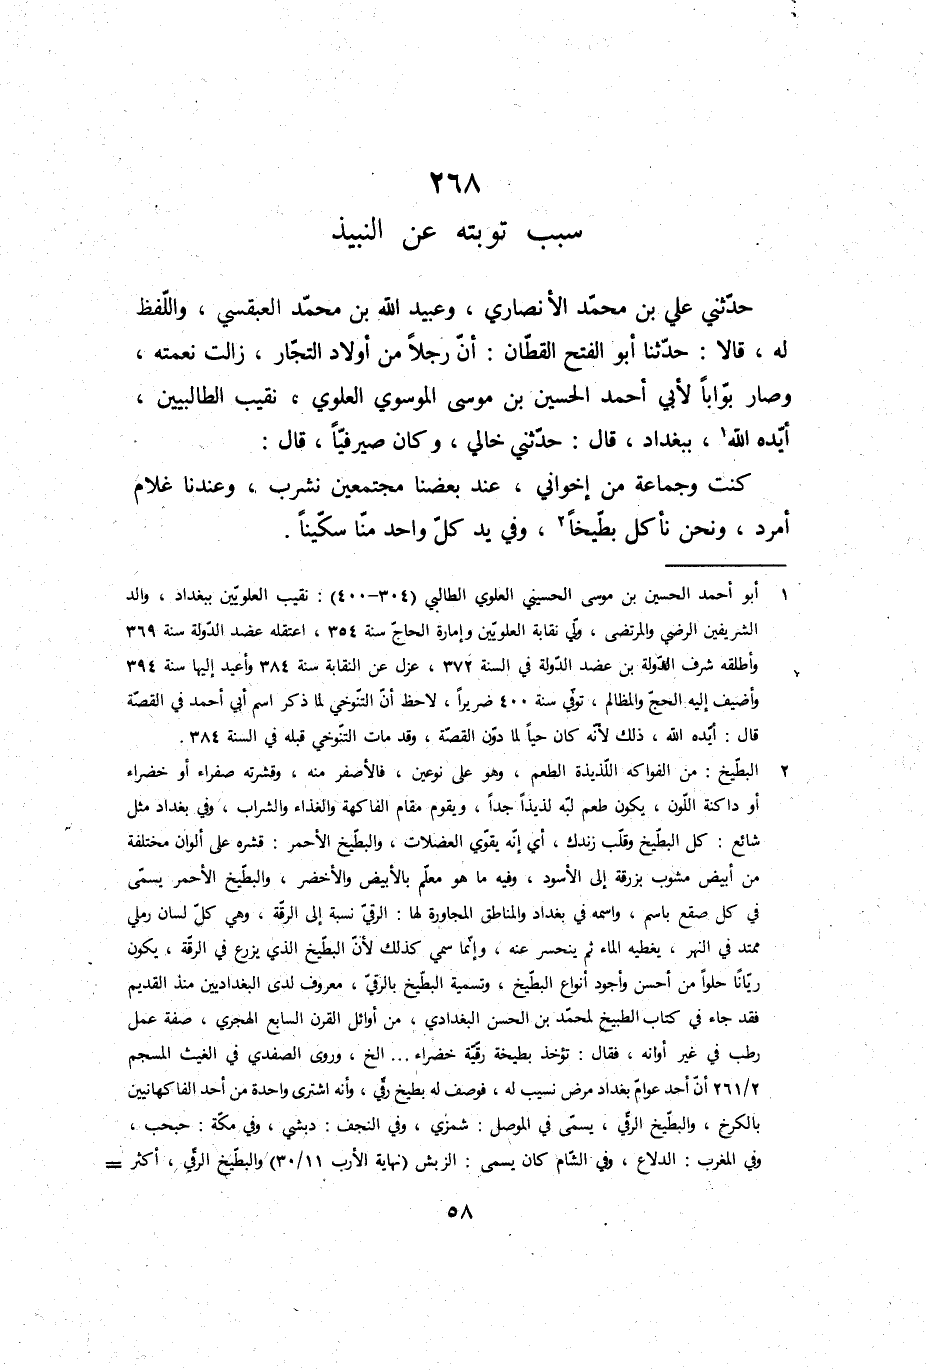 ٢٦٨
سبب توبته عن النبيذ
حدّثني علي بن محمّد الأنصاري ، وعبيد الله بن محمّد العبقسي ، واللّفظ
له ، قالا : حدّثنا أبو الفتح القطّان : أنّ رجلاً من أولاد التجّار ، زالت نعمته ،
وصار بوّاباً لأبي أحمد الحسين بن موسى الموسوي العلوي ، نقيب الطالبيين ،
أيّده الله١ ، ببغداد ، قال : حدّثني خالي ، وكان صيرفيّاً ، قال :
كنت وجماعة من إخواني ، عند بعضنا مجتمعين نشرب ، وعندنا غلام
أمرد ، ونحن نأكل بطّيخاً٢ ، وفي يد كلّ واحد منّا سكّيناً .
١ أبو أحمد الحسين بن موسى الحسيني العلوي الطالبي (٣٠٤–٤٠٠) : نقيب العلويّين ببغداد ، والد
الشريفين الرضي والمرتضى ، ولّي نقابة العلويّين وإمارة الحاجّ سنة ٣٥٤ ، اعتقله عضد الدّولة سنة ٣٦٩
وأطلقه شرف الدّولة بن عضد الدّولة في السنة ٣٧٢ ، عزل عن النقابة سنة ٣٨٤ وأعيد إليها سنة ٣٩٤
وأضيف إليه الحجّ والمظالم ، توفّي سنة ٤٠٠ ضريراً ، لاحظ أنّ التنّوخي لما ذكر اسم أبي أحمد في القصّة
قال : أيّده الله ، ذلك لأنّه كان حياً لما دوّن القصّة ، وقد مات التنّوخي قبله في السنة ٣٨٤ .
٢ البطّيخ : من الفواكه اللّذيذة الطعم ، وهو على نوعين ، فالأصفر منه ، وقشرته صفراء أو خضراء
أو داكنة اللّون ، يكون طعم لبّه لذيذاً جداً ، ويقوم مقام الفاكهة والغذاء والشراب ، وفي بغداد مثل
شائع : كل البطّيخ وقلّب زندك ، أي إنّه يقوّي العضلات ، والبطّيخ الأحمر : قشره على ألوان مختلفة
من أبيض مشوب بزرقة إلى الأسود ، وفيه ما هو معلّم بالأبيض والأخضر ، والبطّيخ الأحمر يسمّى
في كل صقع باسم ، واسمه في بغداد والمناطق المجاورة لها : الرقيّ نسبة إلى الرقّة ، وهي كلّ لسان رملي
ممتد في النهر ، يغطيه الماء ثم ينحسر عنه ، وإنّما سمي كذلك لأنّ البطّيخ الذي يزرع في الرقّة ، يكون
ريّانًا حلواً من أحسن وأجود أنواع البطّيخ ، وتسمية البطّيخ بالرقيّ ، معروف لدى البغداديين منذ القديم
فقد جاء في كتاب الطبيخ لمحمّد بن الحسن البغدادي ، من أوائل القرن السابع الهجري ، صفة عمل
رطب في غير أوانه ، فقال : تؤخذ بطيخة رقّيّة خضراء ... الخ ، وروى الصفدي في الغيث المسجم
٢٦١/٢ أنّ أحد عوامّ بغداد مرض نسيب له ، فوصف له بطيخ رقّي ، وأنه اشترى واحدة من أحد الفاكهانيين
بالكرخ ، والبطّيخ الرقّي ، يسمّى في الموصل : شمزي ، وفي النجف : دبشي ، وفي مكّة : حبحب ،
وفي المغرب : الدلاع ، وفي الشّام كان يسمى : الزبش (نهاية الأرب ٣٠/١١) والبطّيخ الرقّي ، أكثر =
٥٨